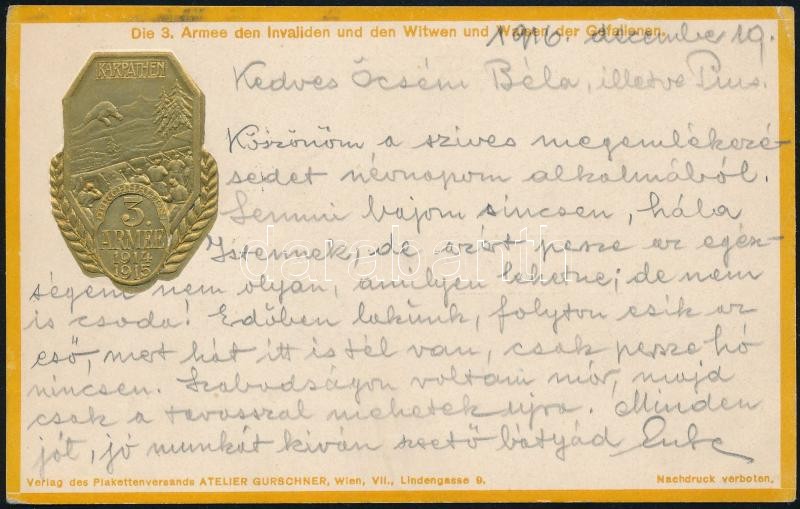 Die 3. Armee den Invaliden und den Witwen und Waisen der Gefallenen.
1916. december 19.
Kedves Öcsém Béla, illetve Pius.
KARPATHEN
3.
ARMEE
1914
1915
Köszönöm a szives megemlékezé-
sedet névnapom alkalmából.
Semmi bajom sincsen, hála
Istennek, de azért persze az egész-
ségem nem olyan, amilyen lehetne; de nem
is csoda! Erdőben lakunk, folyton esik az
eső, mert hát itt is tél van, csak persze hó
nincsen. Szabadságon voltam már, majd
csak a tavasszal mehetek ujra. Minden
jót, jó munkát kiván szerető bátyád
Verlag des Plakettenversands ATELIER GURSCHNER, Wien, VII., Lindengasse 9.
Nachdruck verboten.
darabanth